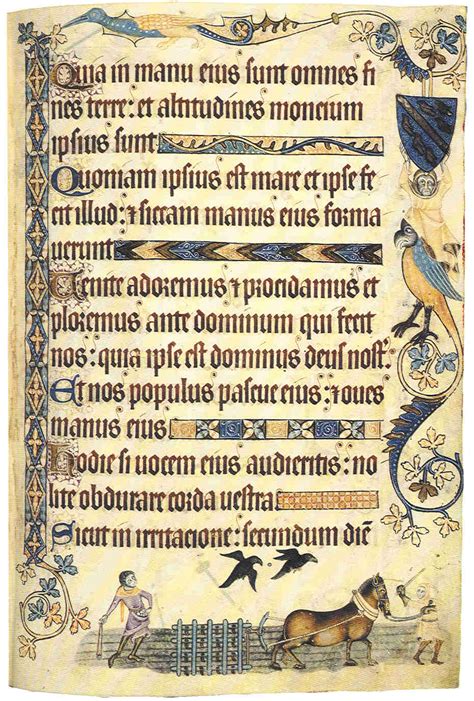 Quia in manu eius sunt omnes fi
nes terre: et altitudines moncium
ipsius sunt
Quoniam ipsius est mare et ipse fe
cit illud: ⁊ siccam manus eius forma
uerunt
Uenite adoremus ⁊ procidamus et
ploremus ante dominum qui fecit
nos: quia ipse est dominus deus nost͛.
Et nos populus pascue eius: ⁊ oues
manus eius
Hodie si uocem eius audieritis: no
lite obdurare corda uestra
Sicut in irritacione: secundum diē